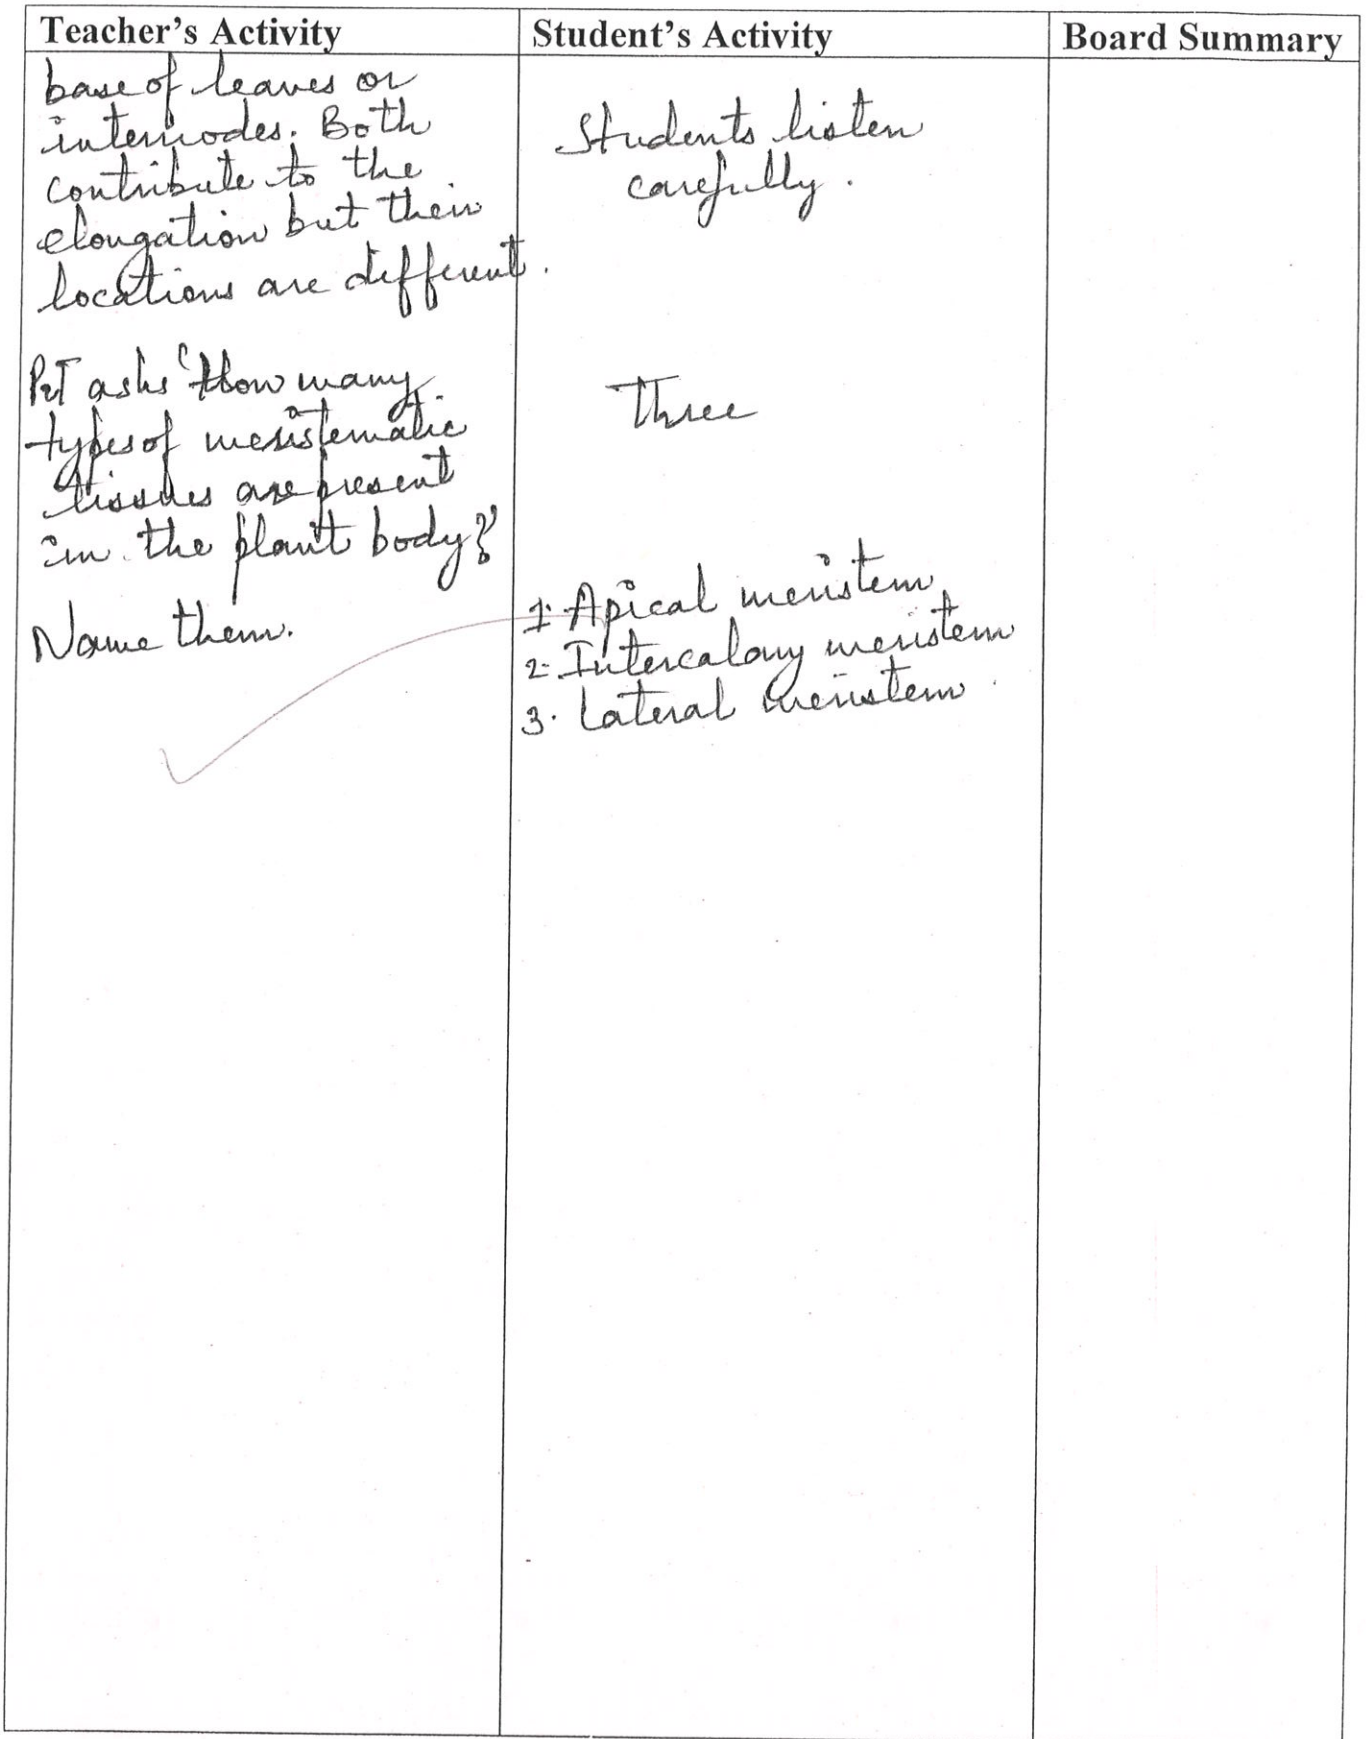 Teacher's Activity
Student's Activity
Board Summary
base of leaves or
internodes. Both
contribute to the
elongation but their
locations are different.
Students listen
carefully.
asks 'How many
types of meristematic
tissues are present
in the plant body?'
Three
Name them.
1. Apical meristem
2. Intercalary meristem
3. Lateral meristem.